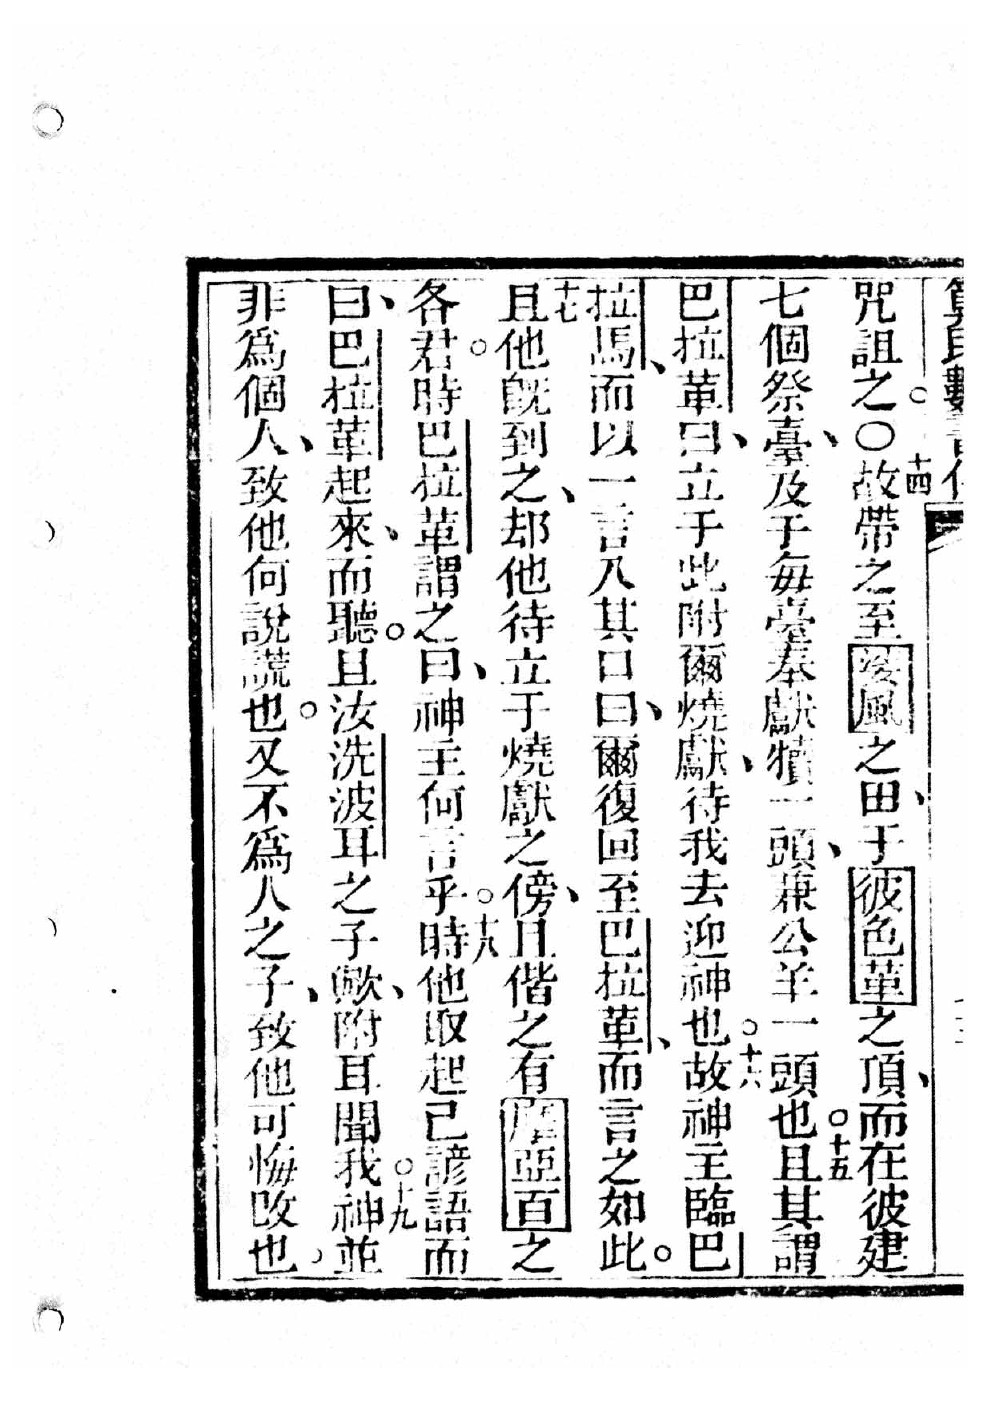 數書
咒詛之。〇十四故帶之至浚風之田、于彼色菫之頂、而在彼建
七個祭臺、及于每臺奉獻犢一頭、兼公羊一頭也。十五且其謂
巴拉革曰、立于此附爾燒獻、待我去迎神也。十六故神主臨巴
拉馬、而以一言入其口曰、爾復回至巴拉革、而言之如此。
十七且他旣到之、却他待立于燒獻之傍、且偕之有摩亞百之
各君。時巴拉革謂之曰、神主何言乎。十八時他取起己諺語而
曰、巴拉革起來、而聽。且汝洗波耳之子、歟附耳聞我。十九神並
非爲個人、致他何說謊也。又不爲人之子、致他可悔改也。